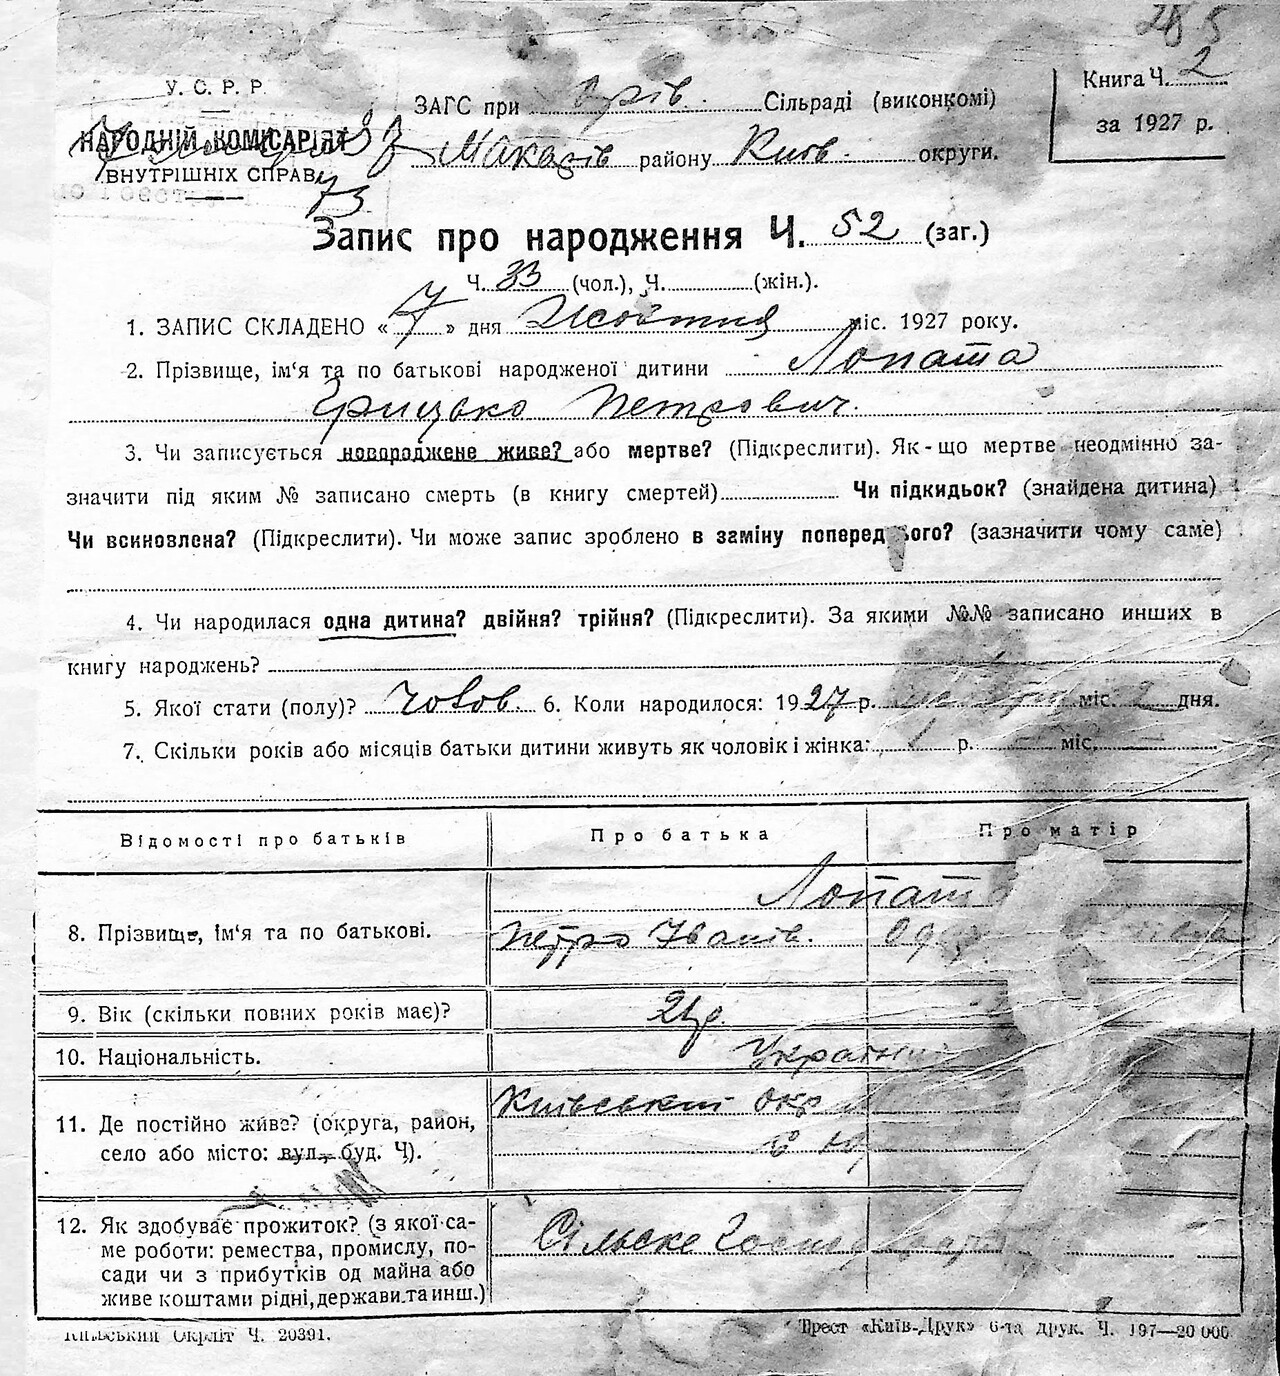 285
У. С. Р. Р.
НАРОДНІЙ КОМІСАРІЯТ
ВНУТРІШНІХ СПРАВ
73
ЗАГС при Сільраді (виконкомі)
Макарів району Київ. округи.
Книга Ч. 2
за 1927 р.
Запис про народження Ч. 52 (заг.)
Ч. 33 (чол.), Ч. (жін.).
1. ЗАПИС СКЛАДЕНО « 7 » дня Жовтня міс. 1927 року.
2. Прізвище, ім‘я та по батькові народженої дитини Лопата
Грицько Петрович.
3. Чи записується новороджене живе? або мертве? (Підкреслити). Як-що мертве неодмінно за-
значити під яким № записано смерть (в книгу смертей) Чи підкидьок? (знайдена дитина)
Чи всиновлена? (Підкреслити). Чи може запис зроблено в заміну попереднього? (зазначити чому саме)
4. Чи народилася одна дитина? двійня? трійня? (Підкреслити). За якими №№ записано инших в
книгу народжень?
5. Якої стати (полу)? Чолов. 6. Коли народилося: 1927 р. міс. 2 дня.
7. Скільки років або місяців батьки дитини живуть як чоловік і жінка: 1 р. — міс. —
Відомості про батьків Про батька Про матір
Лопата
8. Прізвище, ім‘я та по батькові. Петро Іванів.
9. Вік (скільки повних років має)?
10. Національність. Україн
11. Де постійно живе? (округа, район, Київський окр
село або місто: вул., буд. Ч).
12. Як здобуває прожиток? (з якої са- Сільске Господар
ме роботи: ремества, промислу, по-
сади чи з прибутків од майна або
живе коштами рідні, держави та инш.)
Київський Окрліт Ч. 20391. Трест «Київ-Друк» 6-та друк. Ч. 197—20 000